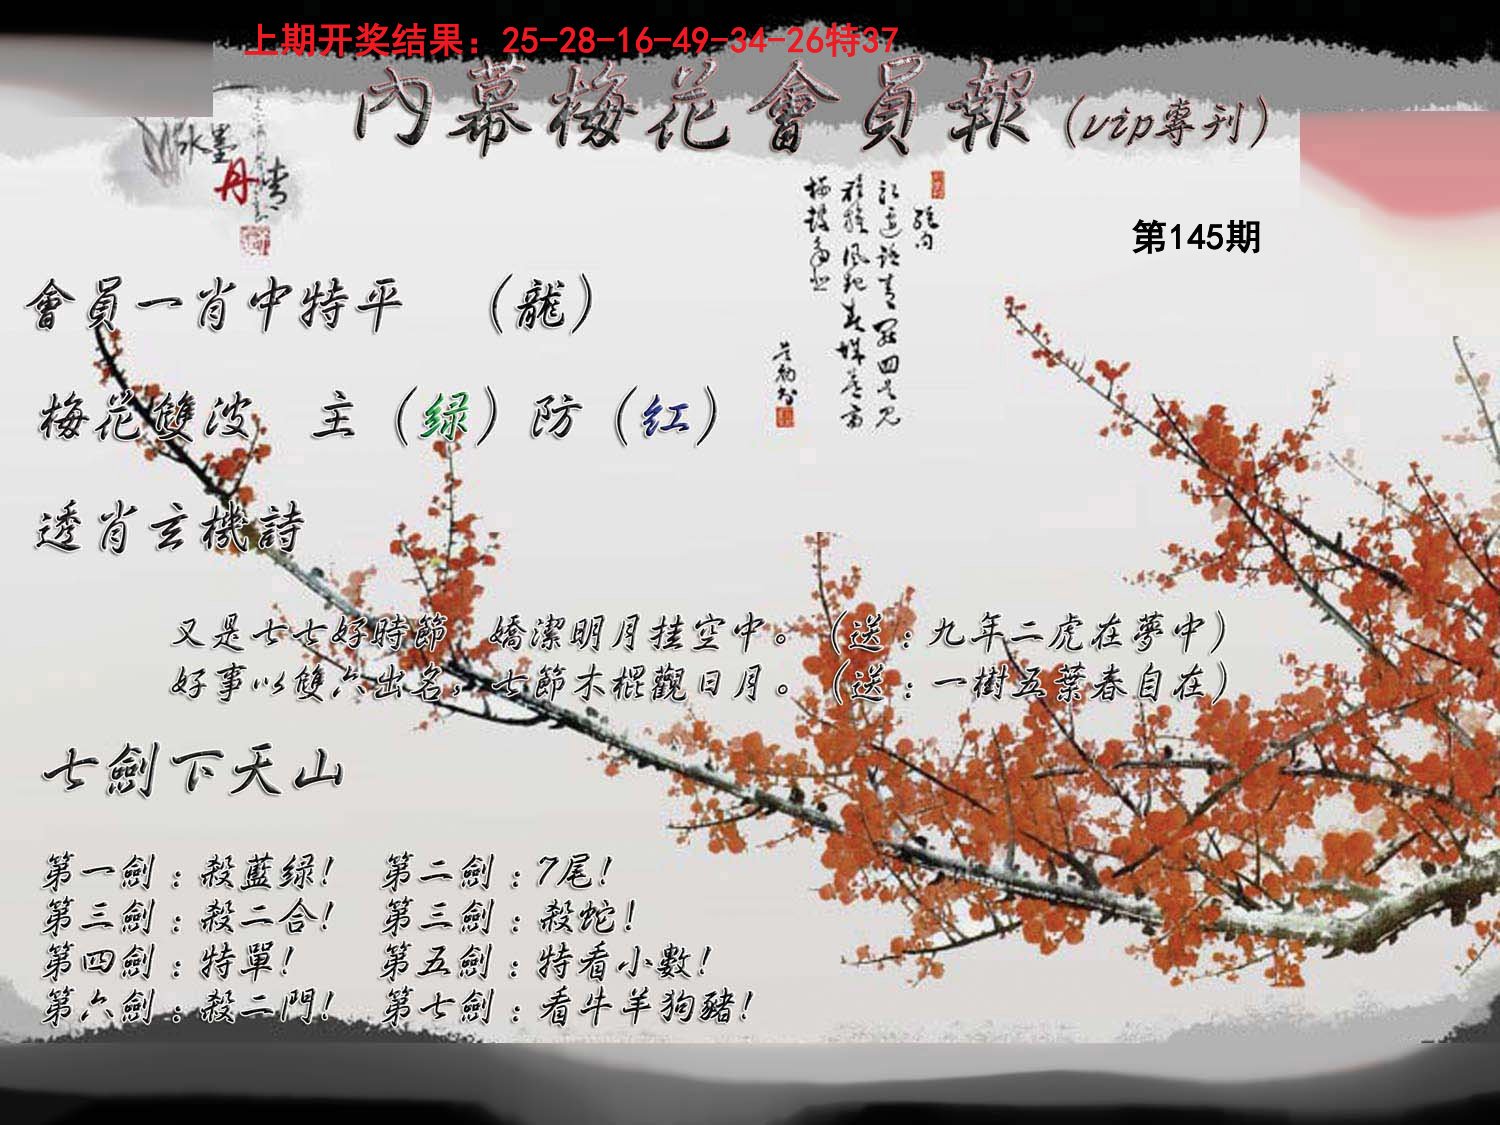 上期开奖结果：25-28-16-49-34-26特37
內幕梅花會員報(vip專刊)
水墨
丹青
第145期
會員一肖中特平 （龍）
梅花雙波 主（绿）防（红）
透肖玄機詩
又是七七好時節，嬌潔明月挂空中。（送：九年二虎在夢中）
好事以雙六出名，七節木棍觀日月。（送：一樹五葉春自在）
七劍下天山
第一劍：殺藍绿！ 第二劍：7尾！
第三劍：殺二合！ 第三劍：殺蛇！
第四劍：特單！ 第五劍：特看小數！
第六劍：殺二門！ 第七劍：看牛羊狗豬！